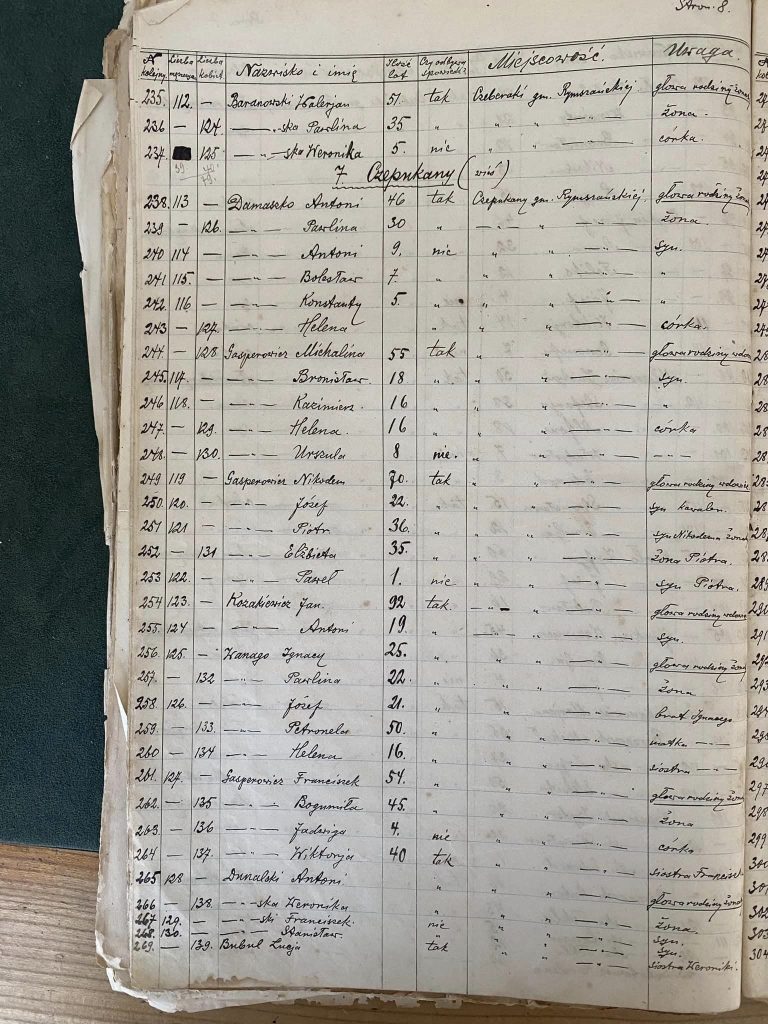 Stron. 8.
N kolejny Liczba mężczyzn Liczba kobiet Nazwisko i imię Ilość lat Czy odbywa spowiedź? Miejscowość. Uwaga.
235. 112. — Baranowski Walerjan 51. tak Czeberaki gm. Rymszańskiej. głowa rodziny żona
236 — 124. —„— ska Pawlina 35 „ „ „ — żona.
237. 125. —„— ska Weronika 5. nie „ „ — córka.
39
7 Czepukany (wieś)
238. 113 — Damaszko Antoni 46 tak Czepukany gm. Rymszańskiej. głowa rodziny żona
239 — 126. —„— Pawlina 30 „ —„— „ —„— żona.
240 114 — —„— Antoni 9. nie „ „ —„— syn.
241 115. — —„— Bolesław 7. „ „ „ —„— „
242. 116. — —„— Konstanty 5. „ „ „ —„— „
243 — 127. —„— Helena „ „ „ —„— córka.
244. — 128 Gasperowicz Michalina 55 tak „ „ —„— głowa rodziny wdowa
245. 117. — —„— Bronisław. 18 „ „ „ —„— syn.
246 118. — —„— Kazimierz. 16 „ „ „ —„— „
247. — 129. —„— Helena. 16 „ „ „ —„— córka
248. — 130. —„— Urszula 8 nie. „ „ —„— — — —
249 119 — Gasperowicz Nikodem 70. tak „ „ —„— głowa rodziny wdowiec
250. 120. — —„— Józef 22. „ „ „ —„— syn kawaler.
251 121 — —„— Piotr 36. „ „ „ —„— syn Nikodema żona
252 — 131 —„— Elżbieta 35. „ „ „ —„— żona Piotra.
253 122. — —„— Paweł 1. nie „ „ —„— syn Piotra.
254 123. — Kozakiewicz Jan. 92 tak. —„— „ —„— głowa rodziny wdowiec
255. 124 — —„— Antoni 19. „ —„— „ —„— syn.
256. 125. — Wanago Ignacy 25. „ „ „ —„— głowa rodziny żona
257. — 132 —„— Pawlina 22. „ „ „ —„— żona
258. 126. — —„— Józef 21. „ „ „ —„— brat Ignacego
259. — 133. —„— Petronela 50. „ „ „ —„— matka —„—
260 — 134 —„— Helena 16. „ „ „ —„— siostra —„—
261. 127. — Gasperowicz Franciszek 54. „ „ „ —„— głowa rodziny żona
262. — 135 —„— Bogumiła 45. „ „ „ —„— żona
263 — 136 —„— Jadwiga 4. nie „ „ —„— córka
264 — 137. —„— Wiktorja 40 tak „ „ —„— siostra Franciszk
265 128 — Dunalski Antoni „ „ „ —„— głowa rodziny żona
266 — 138. —„— ska Weronika „ „ „ —„— żona.
267 129. — —„— ski Franciszek. nie „ „ —„— syn.
268. 130. — —„— Stanisław. „ „ „ —„— syn.
269. — 139. Bubul Łucja tak „ „ —„— siostra Weroniki.